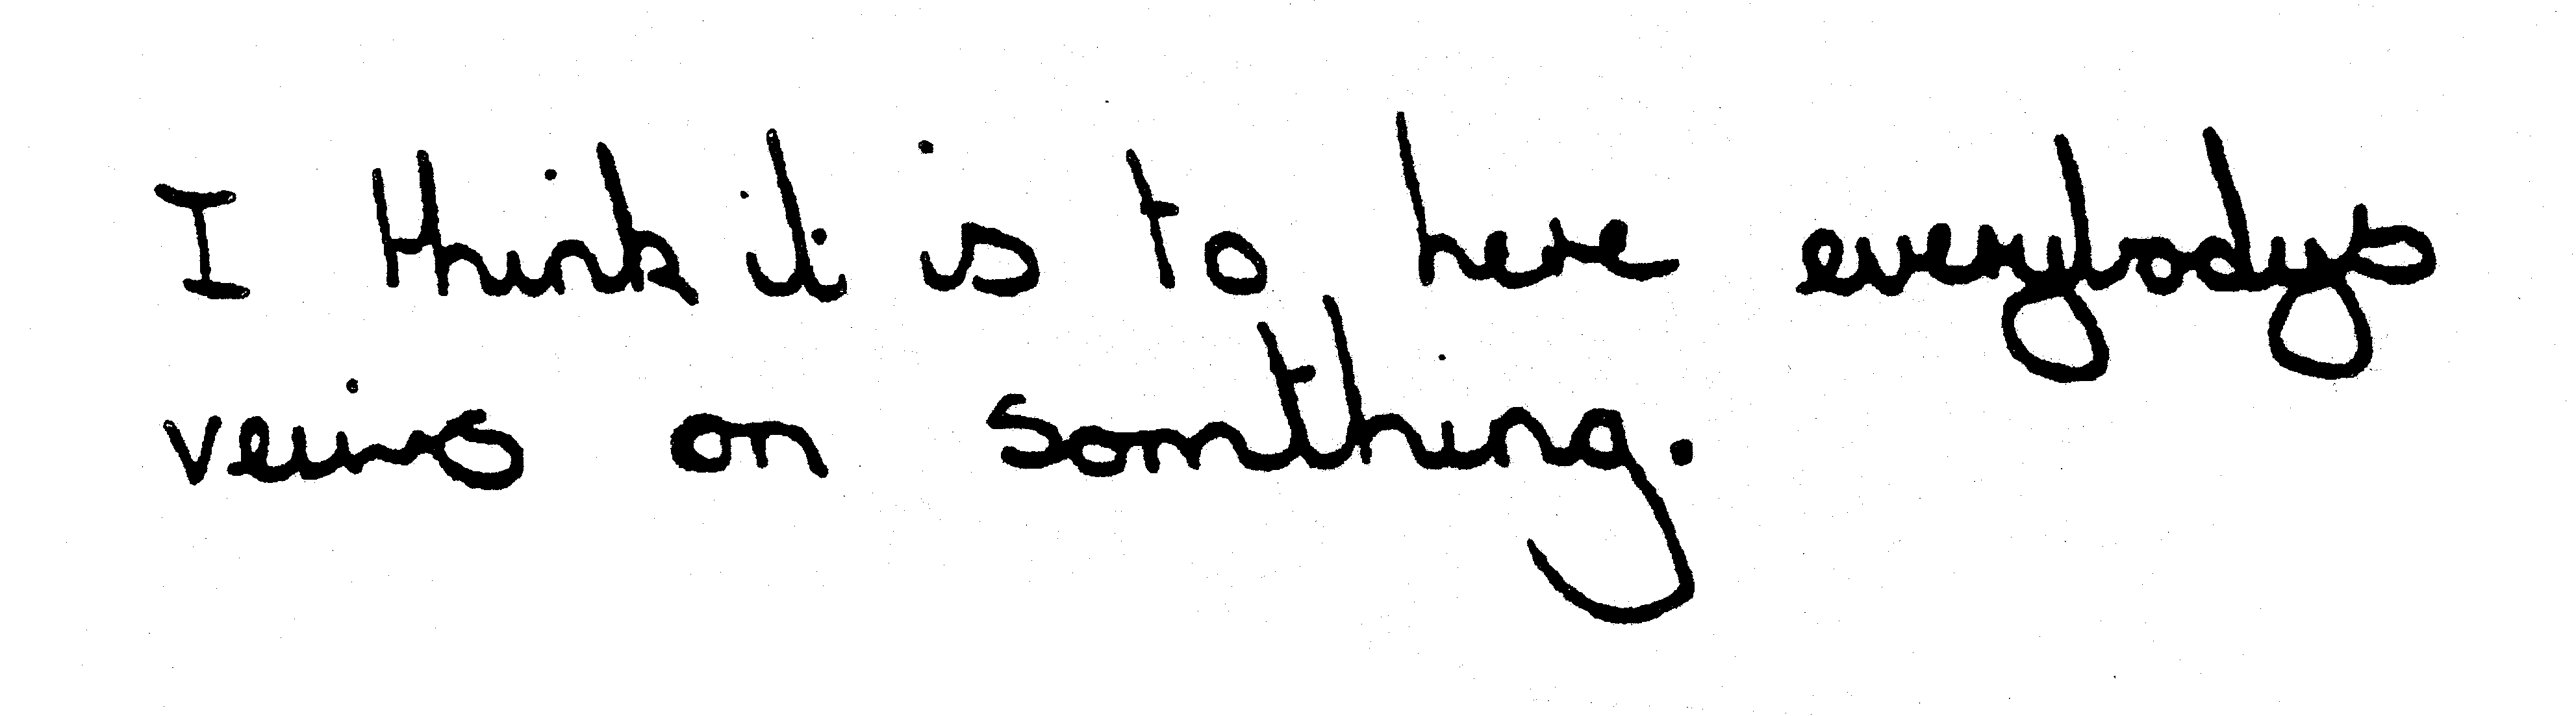 I think it is to here everybodys
veiws on somthing.